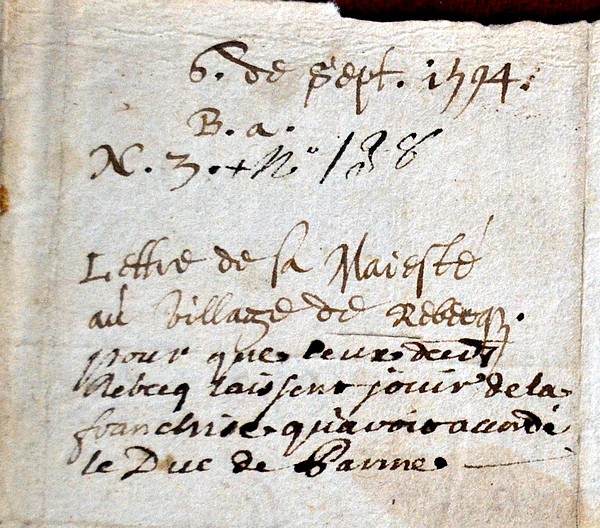 6. de Sept. 1594.
B. a.
N. 3. + N.º 138
Lettre de sa Majesté
au village de Rebecq.
pour que ceux dudit
Rebecq laissent jouir de la
franchise qu'avoit accordé
le Duc de Parme.